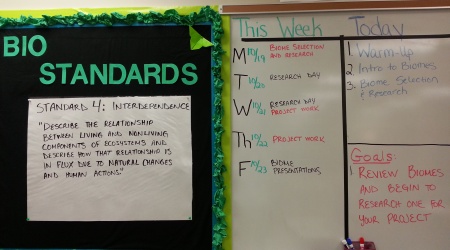 BIO
STANDARDS
STANDARD 4: INTERDEPENDENCE
"DESCRIBE THE RELATIONSHIP
BETWEEN LIVING AND NONLIVING
COMPONENTS OF ECOSYSTEMS AND
DESCRIBE HOW THAT RELATIONSHIP IS
IN FLUX DUE TO NATURAL CHANGES
AND HUMAN ACTIONS."
This Week
M 10/19 BIOME SELECTION
AND RESEARCH
T 10/20 RESEARCH DAY
W 10/21 RESEARCH DAY
PROJECT WORK
Th 10/22 PROJECT WORK
F 10/23 BIOME
PRESENTATIONS
Today
1. Warm-up
2 Intro to Biomes
3. Biome Selection
& Research
Goals:
REVIEW BIOMES
AND BEGIN TO
RESEARCH ONE FOR
YOUR PROJECT